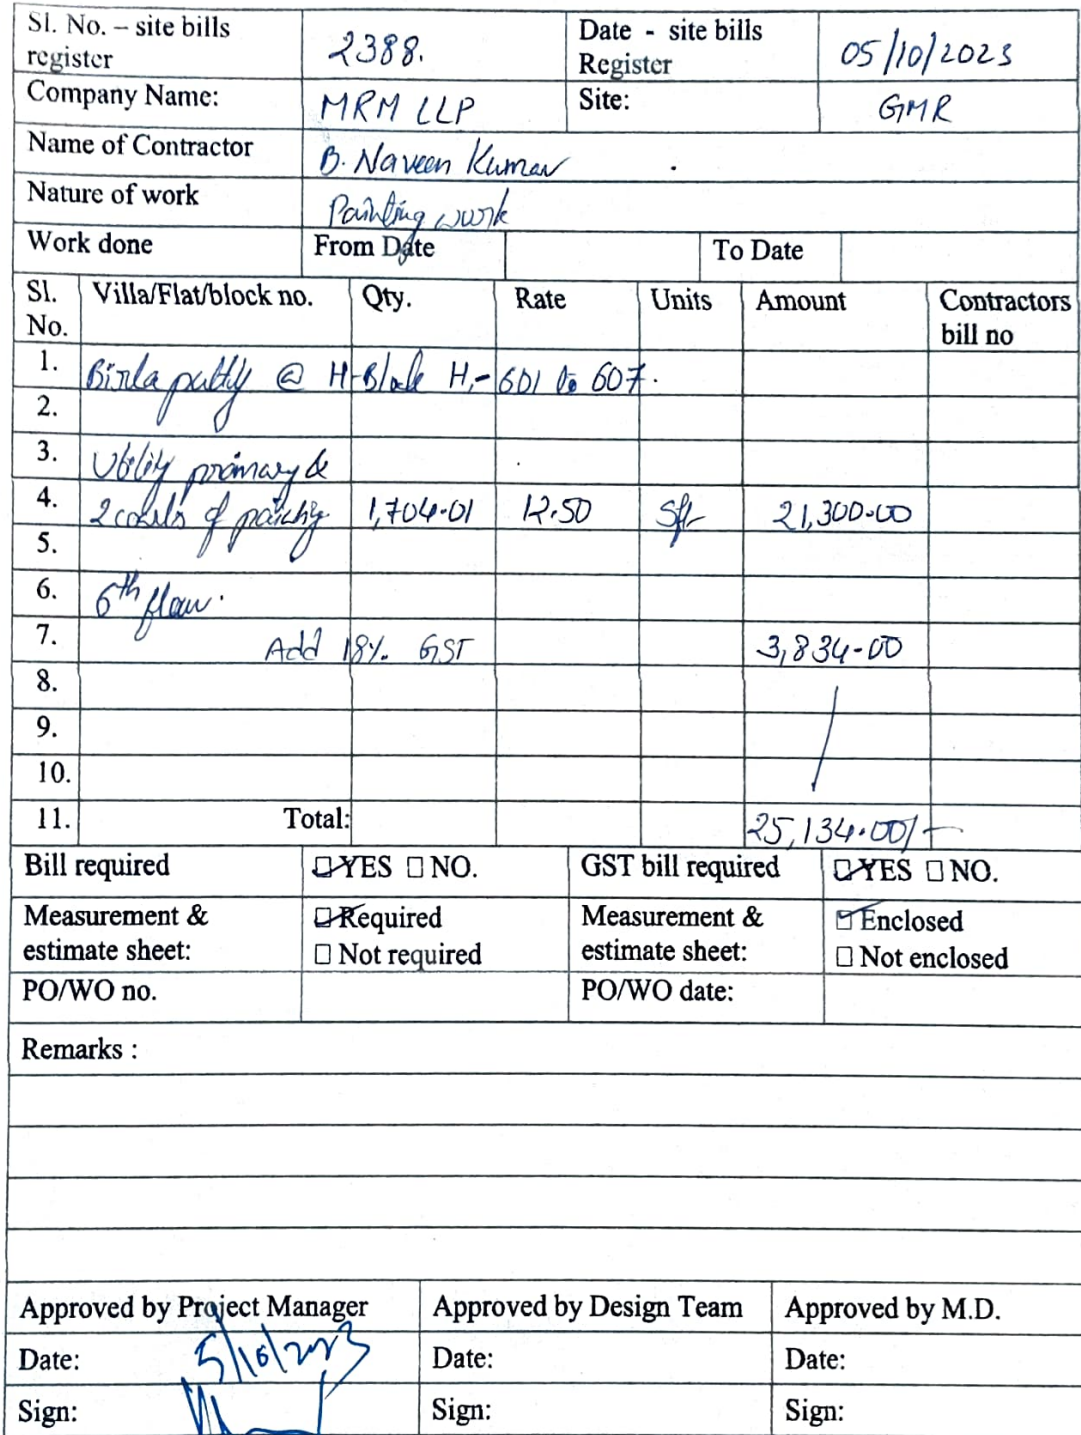 Sl. No. – site bills register 2388. Date - site bills Register 05/10/2023
Company Name: MRM LLP Site: GMR
Name of Contractor B. Naveen Kumar
Nature of work Painting work
Work done From Date To Date
Sl. No. Villa/Flat/block no. Qty. Rate Units Amount Contractors bill no
1. Birla putty @ H-Block H,- 601 to 607.
2.
3. Utility primary &
4. 2 coats of painting. 1,704.01 12.50 Sft 21,300.00
5.
6. 6th floor.
7. Add 18%. GST 3,834-00
8.
9.
10.
11. Total: 25,134.00/-
Bill required YES NO. GST bill required YES NO.
Measurement & estimate sheet: Required Not required Measurement & estimate sheet: Enclosed Not enclosed
PO/WO no. PO/WO date:
Remarks :
Approved by Project Manager Approved by Design Team Approved by M.D.
Date: 5/10/2023 Date: Date:
Sign: Sign: Sign: